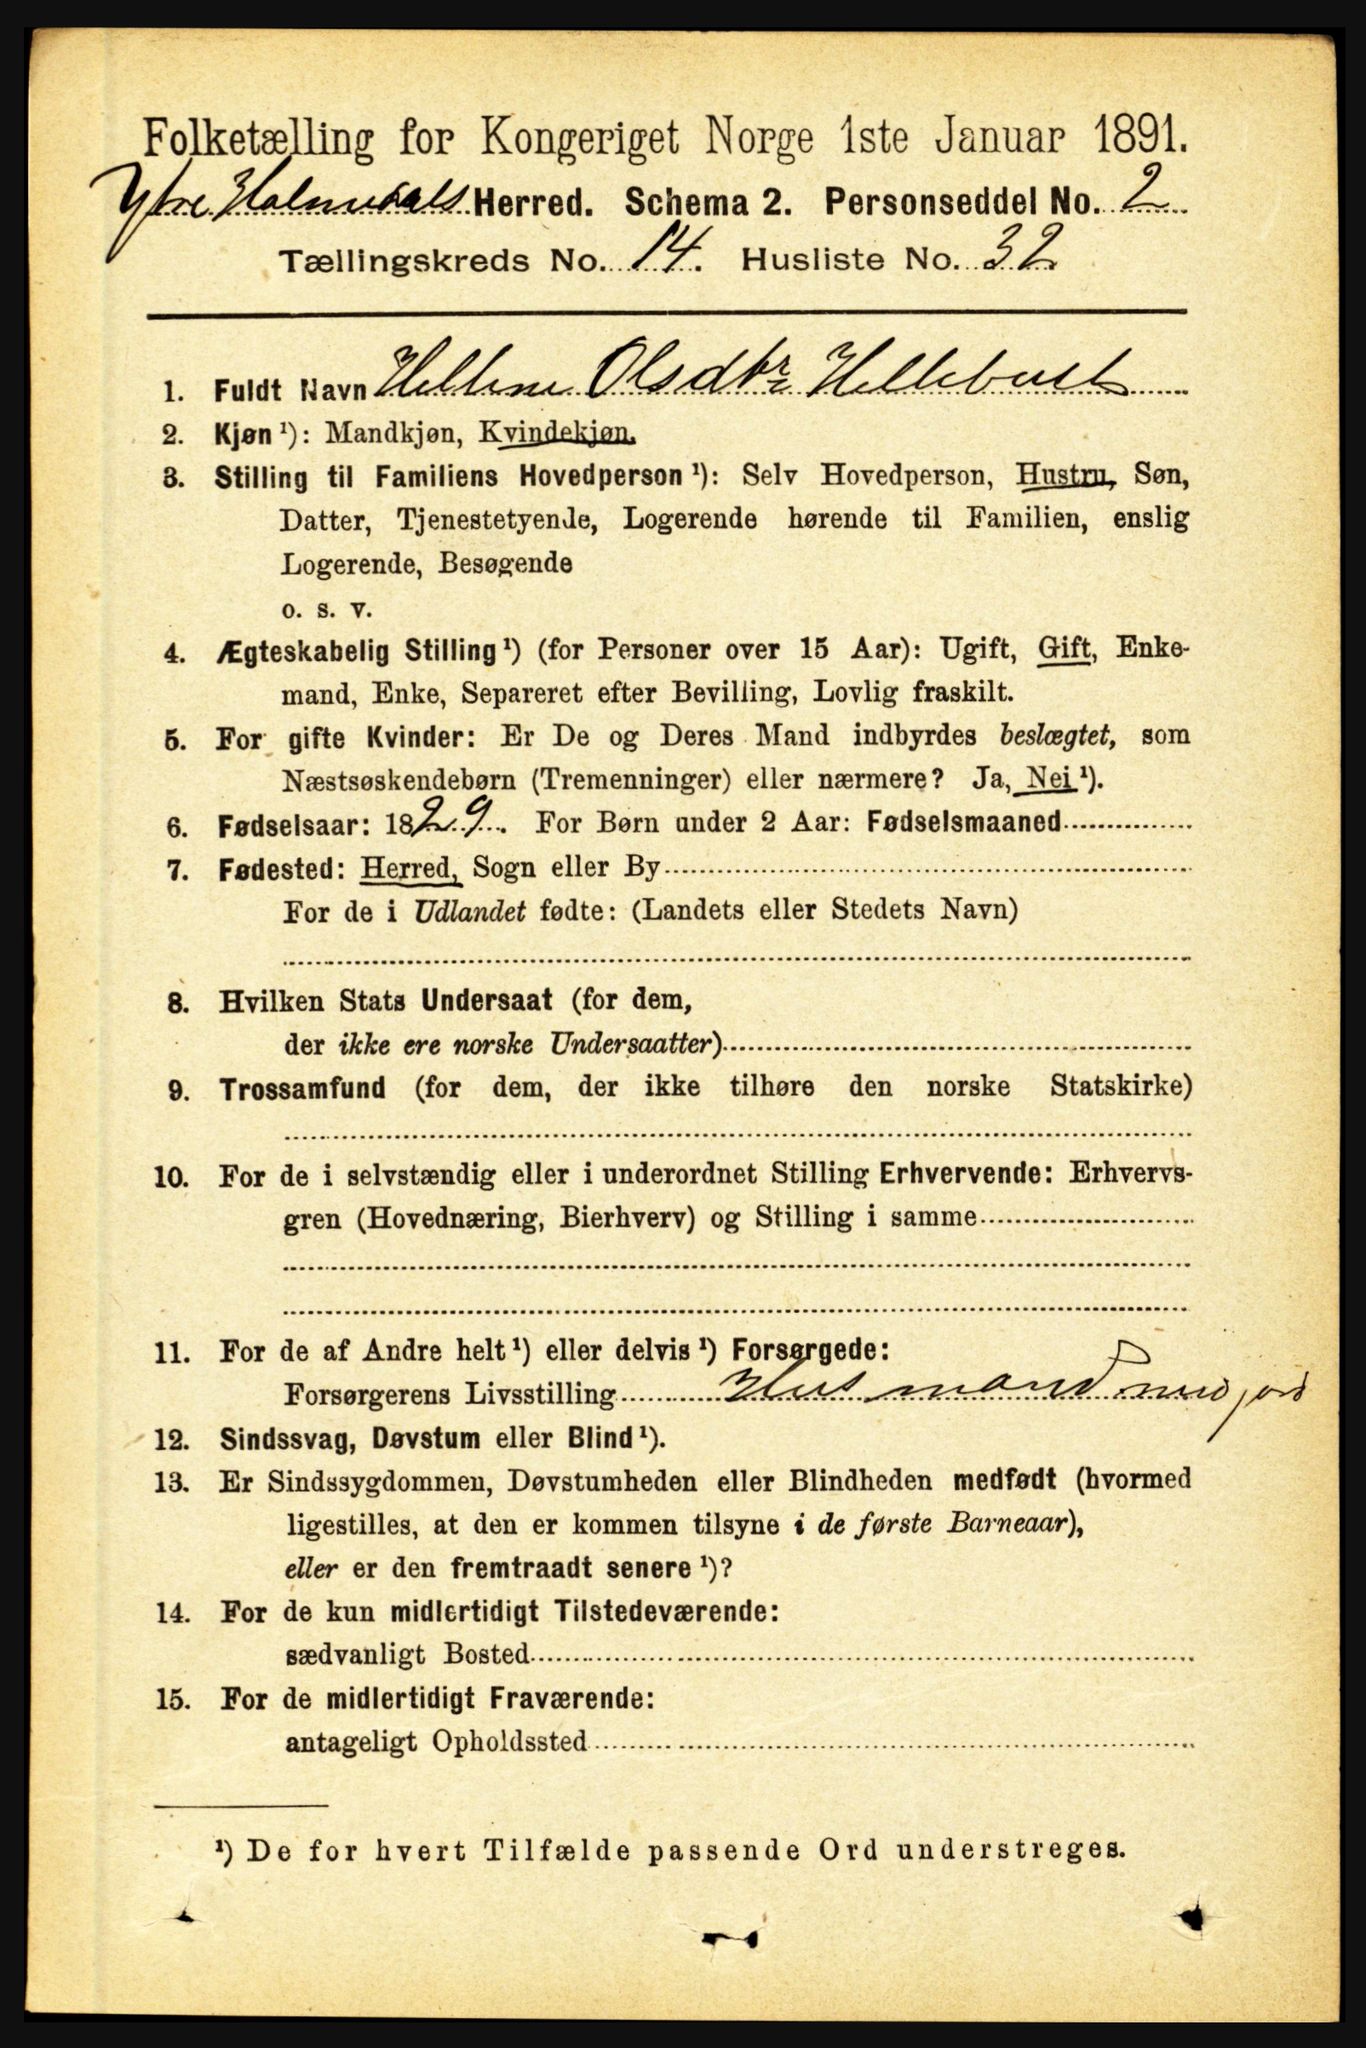 Folketælling for Kongeriget Norge 1ste Januar 1891.
Ytre Holmedals Herred. Schema 2. Personseddel No. 2
Tællingskreds No. 14. Husliste No. 32
1. Fuldt Navn Hellene Olsdtr Hellebust
2. Kjøn ¹): Mandkjøn, Kvindekjøn.
3. Stilling til Familiens Hovedperson ¹): Selv Hovedperson, Hustru, Søn,
Datter, Tjenestetyende, Logerende hørende til Familien, enslig
Logerende, Besøgende
o. s. v.
4. Ægteskabelig Stilling ¹) (for Personer over 15 Aar): Ugift, Gift, Enke-
mand, Enke, Separeret efter Bevilling, Lovlig fraskilt.
5. For gifte Kvinder: Er De og Deres Mand indbyrdes beslægtet, som
Næstsøskendebørn (Tremenninger) eller nærmere? Ja, Nei ¹).
6. Fødselsaar: 1829. For Børn under 2 Aar: Fødselsmaaned
7. Fødested: Herred, Sogn eller By
For de i Udlandet fødte: (Landets eller Stedets Navn)
8. Hvilken Stats Undersaat (for dem,
der ikke ere norske Undersaatter)
9. Trossamfund (for dem, der ikke tilhøre den norske Statskirke)
10. For de i selvstændig eller i underordnet Stilling Erhvervende: Erhvervs-
gren (Hovednæring, Bierhverv) og Stilling i samme
11. For de af Andre helt ¹) eller delvis ¹) Forsørgede:
Forsørgerens Livsstilling Husmand med jord
12. Sindssvag, Døvstum eller Blind ¹).
13. Er Sindssygdommen, Døvstumheden eller Blindheden medfødt (hvormed
ligestilles, at den er kommen tilsyne i de første Barneaar),
eller er den fremtraadt senere ¹)?
14. For de kun midlertidigt Tilstedeværende:
sædvanligt Bosted
15. For de midlertidigt Fraværende:
antageligt Opholdssted
¹) De for hvert Tilfælde passende Ord understreges.